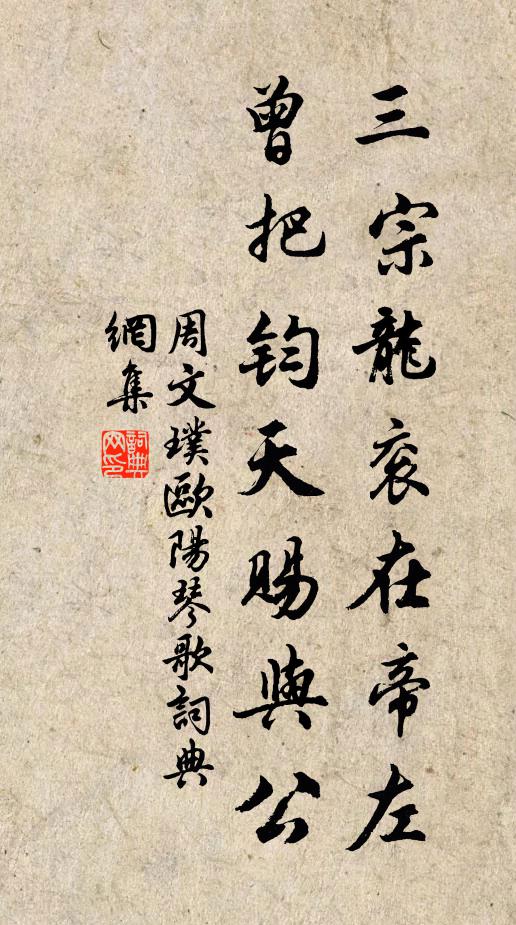 三宗龍衮在帝左
曾把鈞天賜與公
周文璞歐陽琴歌詞典
網集
詞典
网印